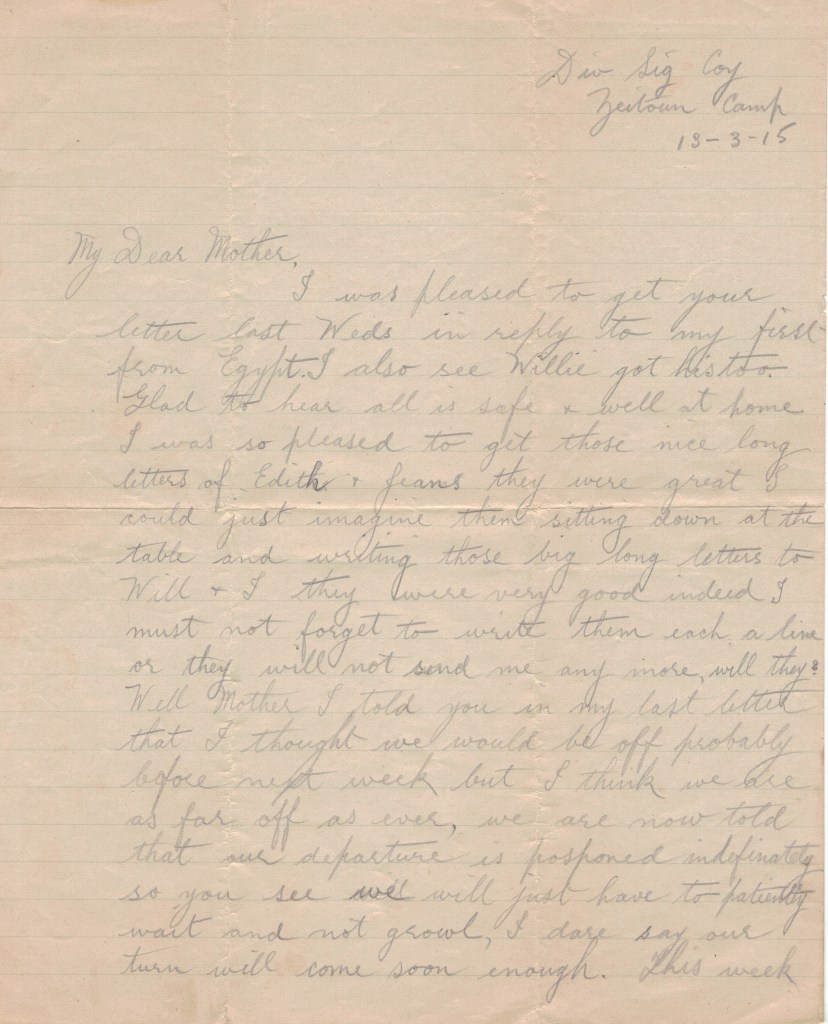 Div Sig Coy
Zeitoun Camp
13-3-15
My Dear Mother,
I was pleased to get your
letter last Weds in reply to my first
from Egypt. I also see Willie got his too.
Glad to hear all is safe & well at home
I was so pleased to get those nice long
letters of Edith & Jeans they were great I
could just imagine them sitting down at the
table and writing those big long letters to
Will & I they were very good indeed I
must not forget to write them each a line
or they will not send me any more, will they?
Well Mother I told you in my last letter
that I thought we would be off probably
before next week but I think we are
as far off as ever, we are now told
that our departure is posponed indefinately
so you see we will just have to patiently
wait and not growl, I dare say our
turn will come soon enough. This week